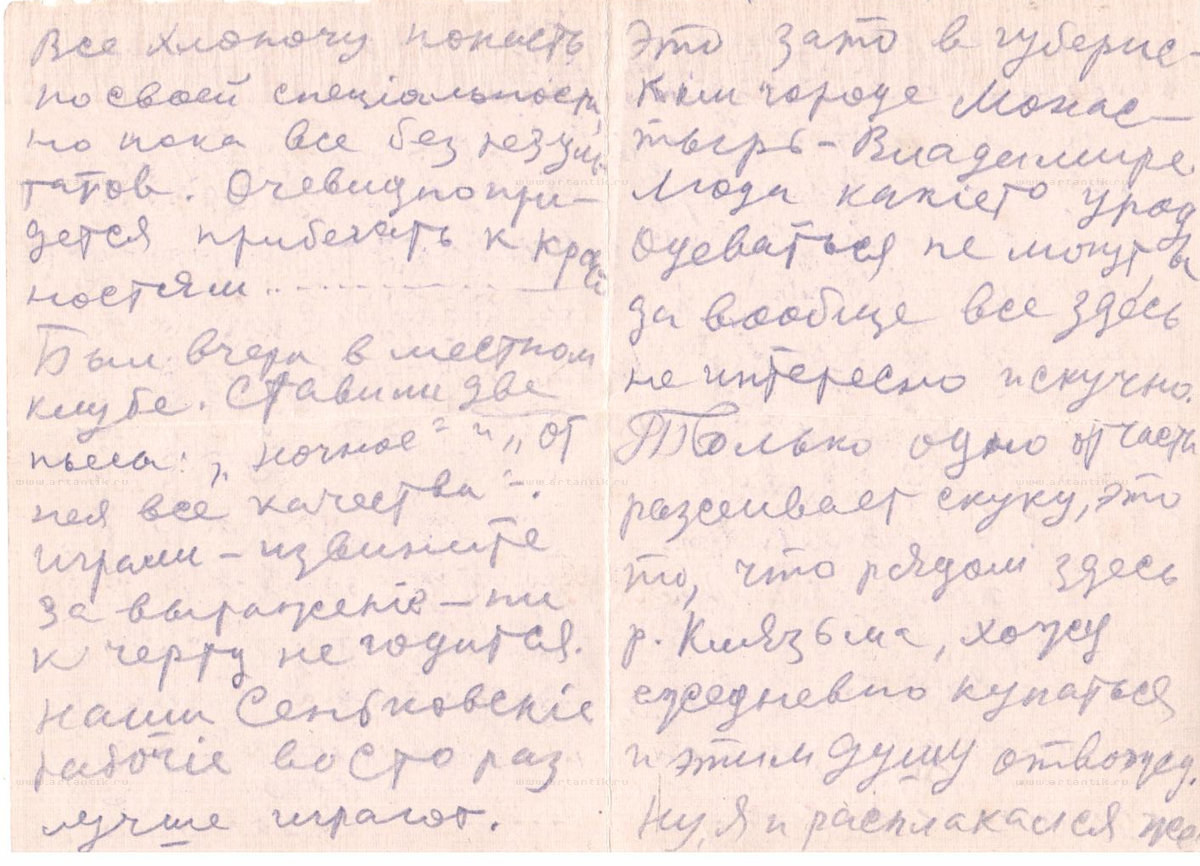 Все хлопочу попасть
по своей спецiальности,
но пока все без резуль-
татов. Очевидно при-
дется прибегать к край
ностям...
Был вчера в местном
клубе. Ставили две
пьесы: „ночное" и „от
нея все качества".
играли – извините
за выраженiе – ни
к черту не годится.
Наши Сеньковскiе
рабочiе во сто раз
лучше играют.
Это зато в губернс-
ком городе Монас-
тырь – Владимире.
Люди какiето уроды
Одеваться не могут,
да вообще все здесь
не интересно и скучно.
Только одно отчасти
разсеивает скуку, это
то, что рядом здесь
р. Клязьма, хожу
ежедневно купаться
и этим душу отвожу.
Ну, я и расплакался же
www.artantik.ru